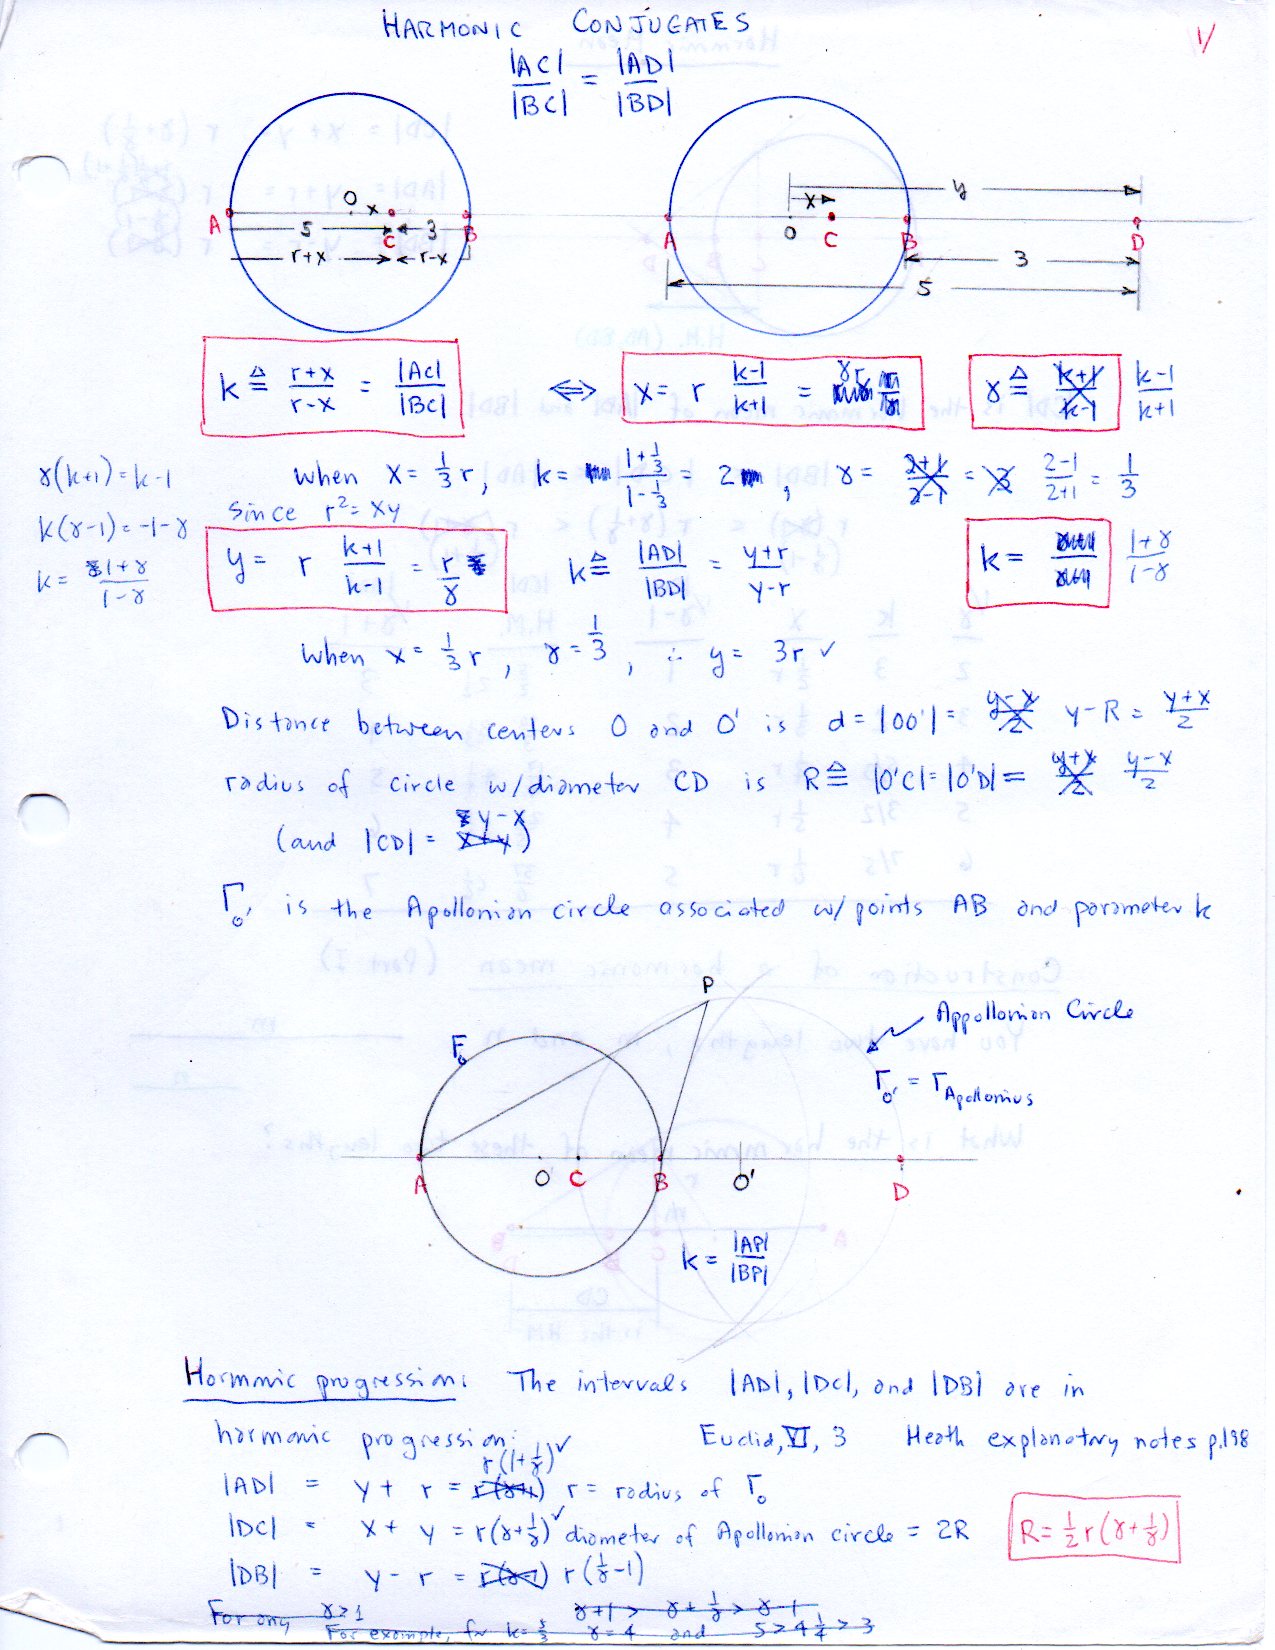 HARMONIC CONJUGATES
1/
|AC| / |BC| = |AD| / |BD|
O x
A 5 C 3 B
r+x r-x
y
x
A O C B D
3
5
k ≜ (r+x)/(r-x) = |AC|/|BC| ⟺ x = r (k-1)/(k+1) = γr γ ≜ (k+1)/(k-1) (k-1)/(k+1)
γ(k+1) = k-1
when x = 1/3 r, k = (1+1/3)/(1-1/3) = 2, γ = (2+1)/(2-1) = 3 (2-1)/(2+1) = 1/3
k(γ-1) = -1-γ
since r² = xy
k = (1+γ)/(1-γ)
y = r (k+1)/(k-1) = r/γ k ≜ |AD|/|BD| = (y+r)/(y-r) k = (1+γ)/(1-γ)
when x = 1/3 r, γ = 1/3, ∴ y = 3r ✓
Distance between centers O and O' is d = |OO'| = (y-x)/2 y-R = (y+x)/2
radius of circle w/diameter CD is R ≜ |O'C| = |O'D| = (y+x)/2 (y-x)/2
(and |CD| = x+y y-x)
Γo' is the Apollonian circle associated w/points AB and parameter k
P
Appollonian Circle
Γo
Γo' = ΓApollonius
A O C B O' D
k = |AP|/|BP|
Harmonic progression: The intervals |AD|, |DC|, and |DB| are in
harmonic progression: Euclid, VI, 3 Heath explanatory notes p.198
|AD| = y + r = r(γ+1) r(1+1/γ) ✓ r = radius of Γo
|DC| = x + y = r(γ+1/γ) ✓ diameter of Apollonian circle = 2R R = 1/2 r(γ+1/γ)
|DB| = y - r = r(γ-1) r(1/γ-1)
For any γ>1 γ+1 > γ+1/γ > γ-1
For example, for k=5/3 γ=4 and 5 > 4 1/4 > 3